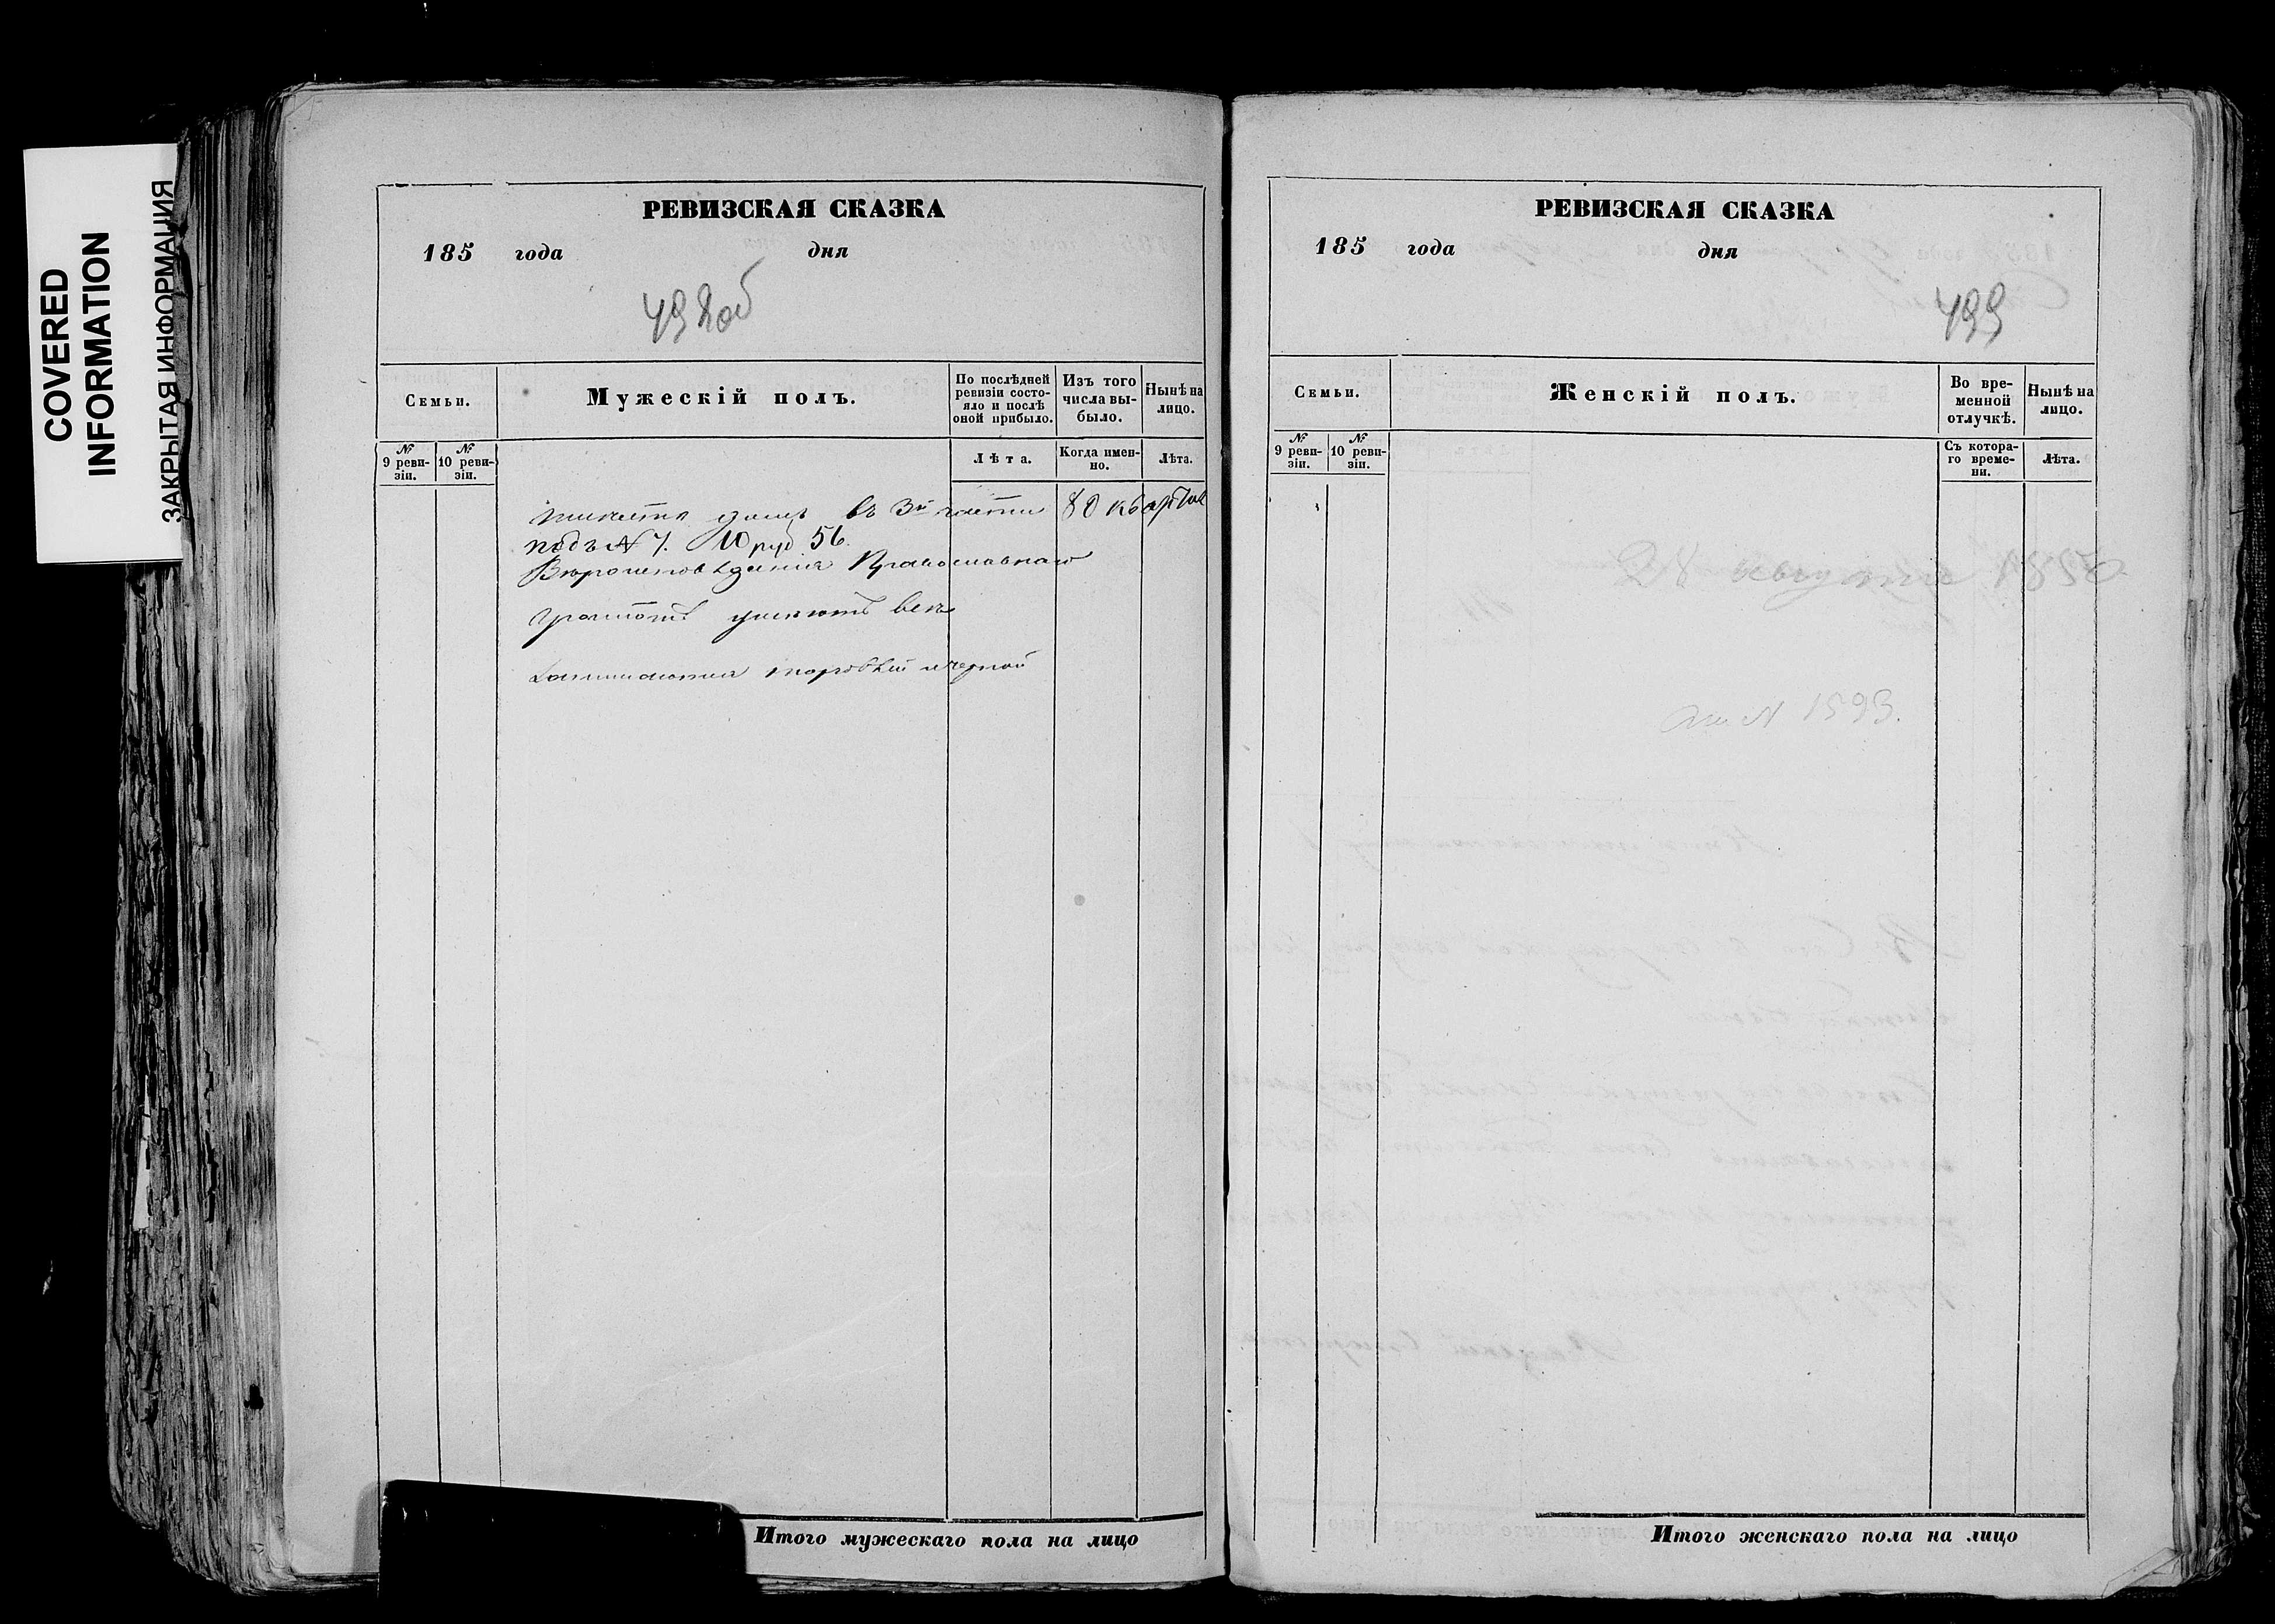 COVERED
INFORMATION
ЗАКРЫТАЯ ИНФОРМАЦИЯ
РЕВИЗСКАЯ СКАЗКА
185 года дня
498 об
Семьи.
Мужескій полъ.
По послѣдней ревизіи состояло и послѣ оной прибыло.
Изъ того числа выбыло.
Нынѣ на лицо.
№ 9 ревизіи.
№ 10 ревизіи.
Лѣта.
Когда именно.
Лѣта.
имеется домъ въ 3й части 80 квартал
подъ № 7. 10 руб 56
Вѣроисповѣданія Православнаго
грамотѣ умѣютъ
занимаются торговлей
Итого мужескаго пола на лицо
РЕВИЗСКАЯ СКАЗКА
185 года дня
499
Семьи.
Женскій полъ.
Во временной отлучкѣ.
Нынѣ на лицо.
№ 9 ревизіи.
№ 10 ревизіи.
Съ котораго времени.
Лѣта.
№ 1593.
Итого женскаго пола на лицо